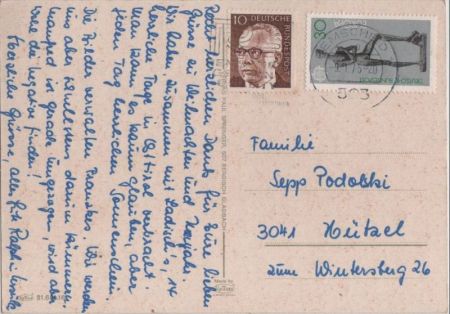 Recht herzlichen Dank für Eure lieben
Grüsse zu Weihnachten und Neujahr.
Wir haben zusammen mit Ladich's, 14
herrliche Tage in Osttirol verbracht.
Man kann es kaum glauben, aber
jeden Tag herrlichen Sonnenschein.
Die Bilder verwalten Franikes. Wir werden
uns aber demnächst darum kümmern.
Manfred ist gerade umgezogen, wird aber
die Negative finden!
Herzliche Grüsse, alles Gute
10
DEUTSCHE
BUNDESPOST
30
REMSCHEID
Familie
Sepp Podolski
3041 Hützel
zum Wintersberg 26